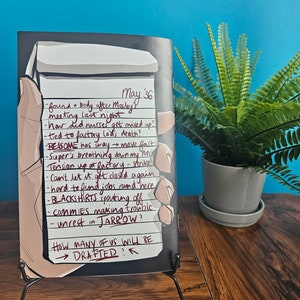 May '36
- found a body after Mosley
meeting last night
- how did nurse get mixed up?
- tied to factory lass death?
- BEASOME has way → move fast
- Super's breathing down my neck
- Tension up at factory - strike?
- can't let it get closed again
- hard to find jobs round here
- BLACKSHIRTS kicking off
- commies making trouble
- unrest in JARROW?
HOW MANY OF US WILL BE
→ DRAFTED? ←